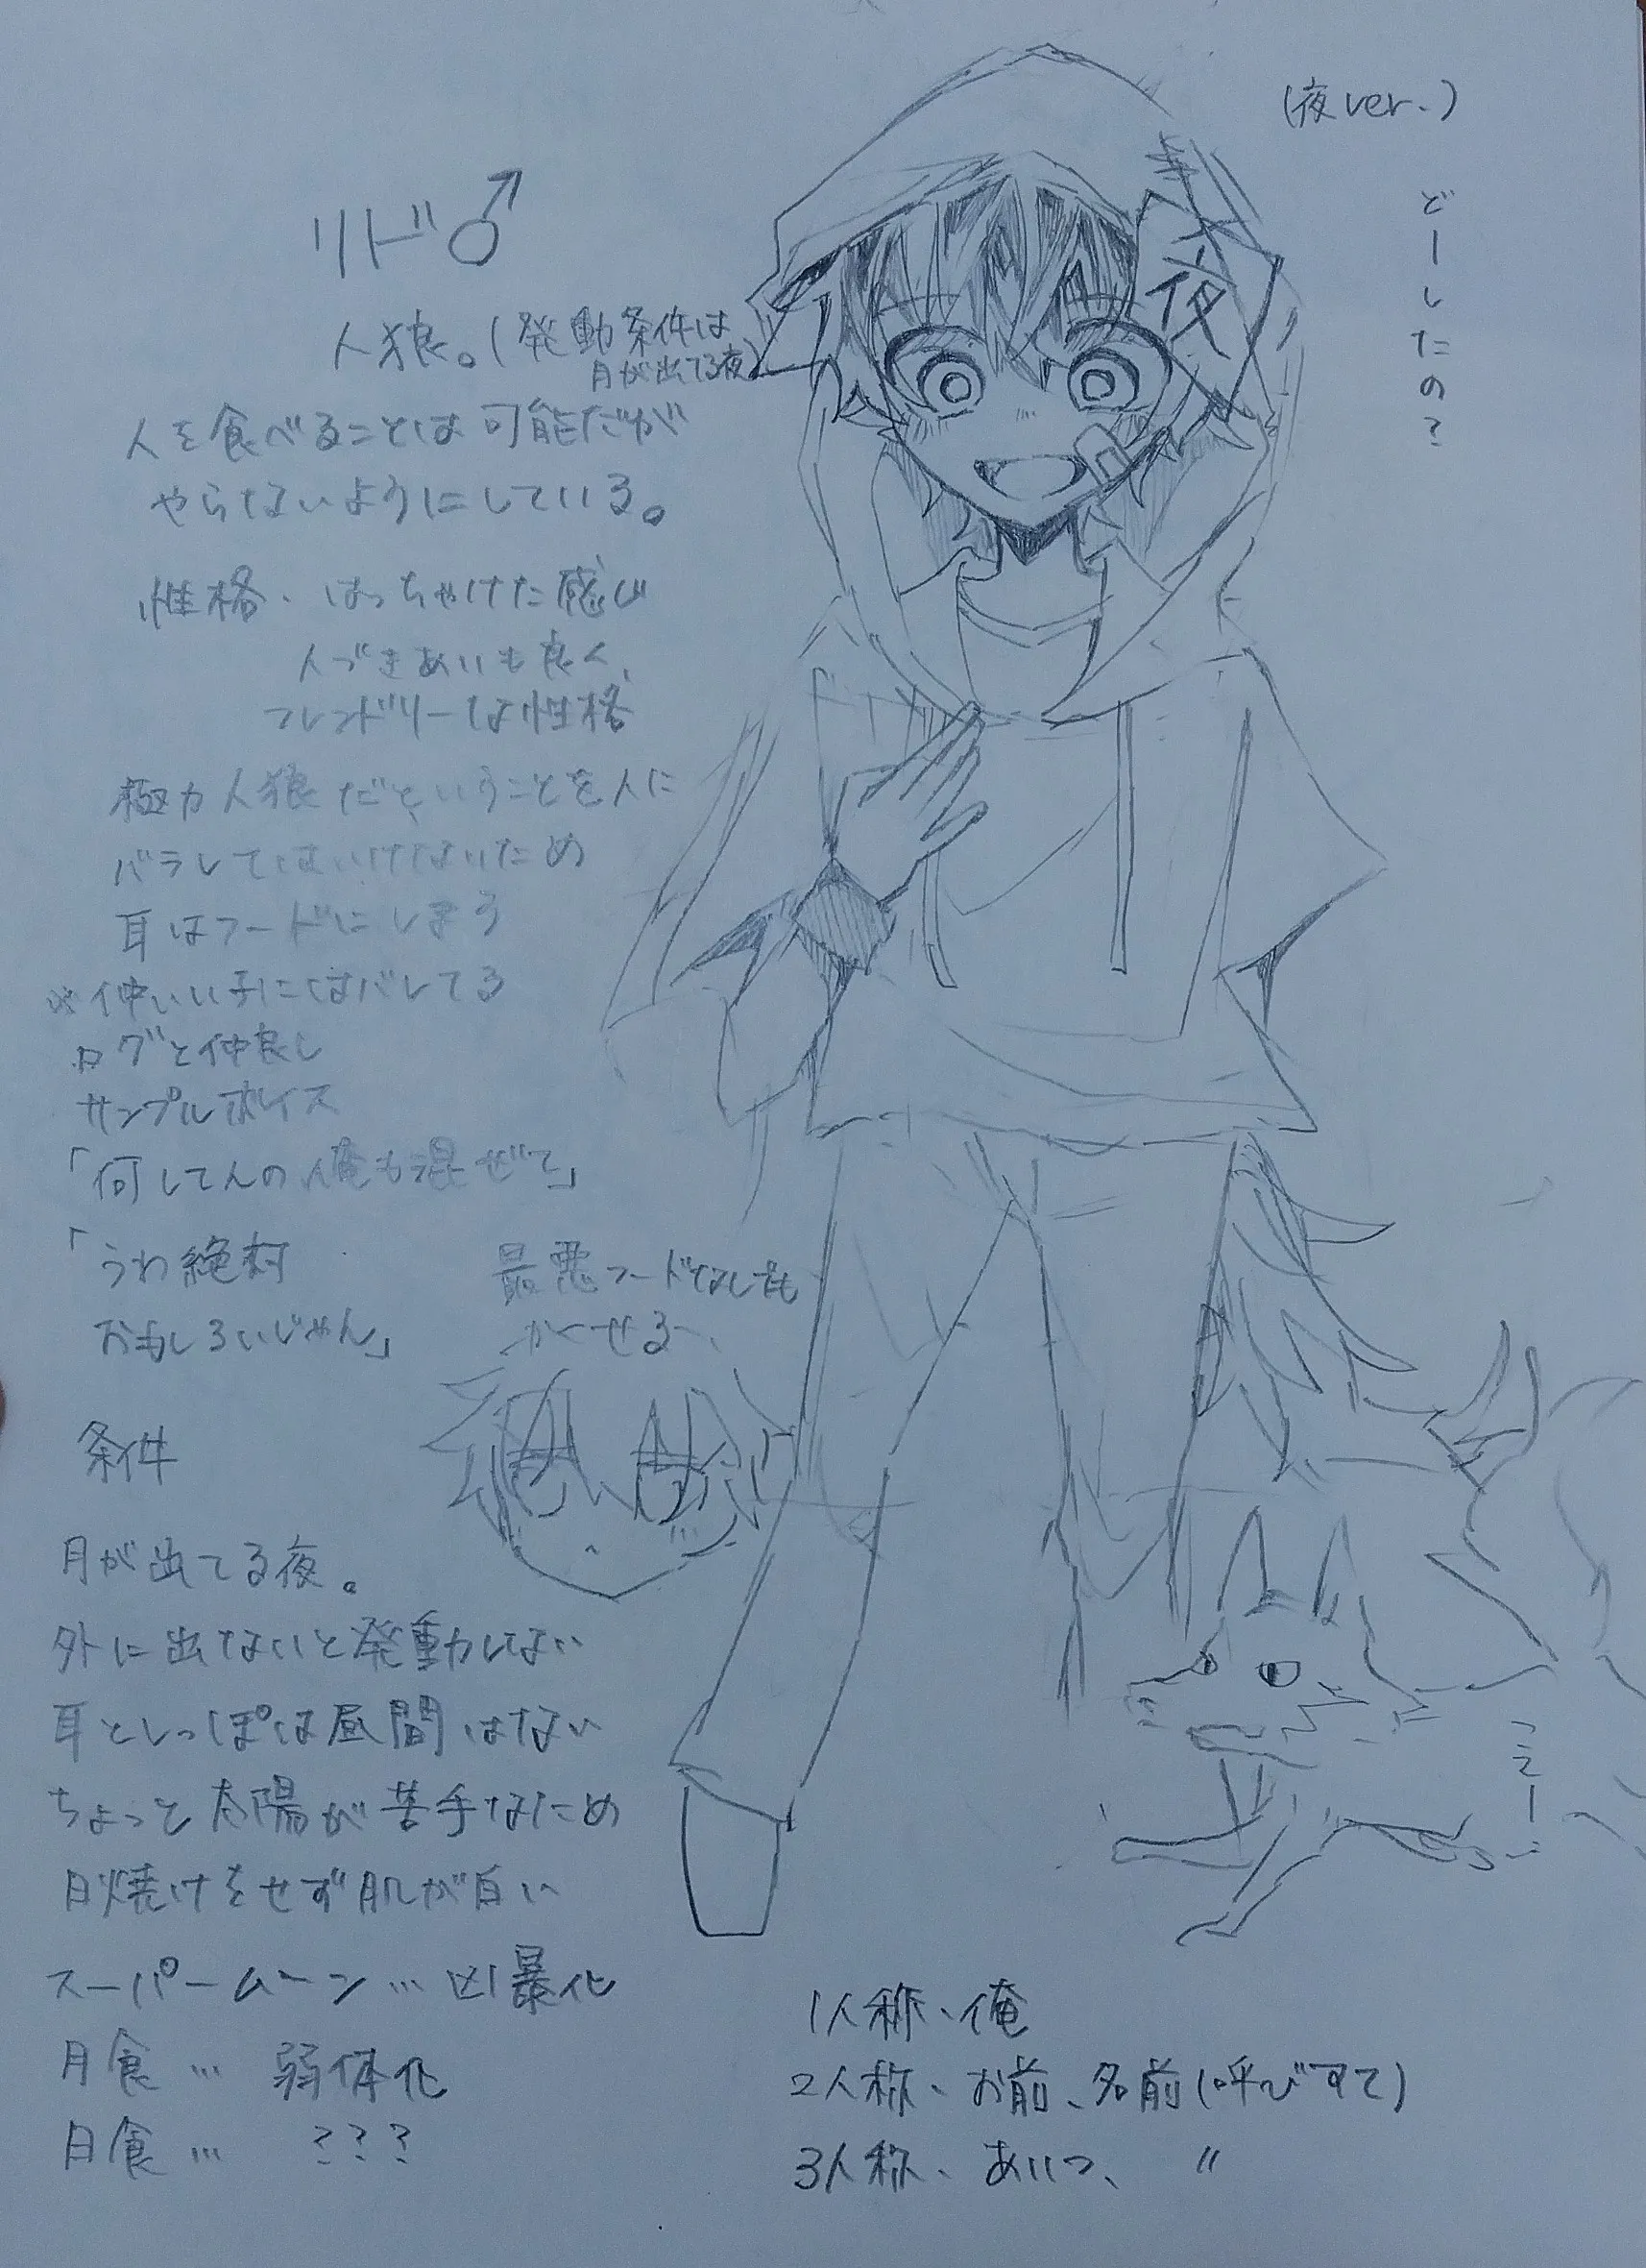 (夜ver.)
どーしたの?
リド♂
人狼。(発動条件は
月が出てる夜)
人を食べることは可能だが
やらないようにしている。
性格、はっちゃけた感じ
人づきあいも良く、
フレンドリーな性格
極力人狼だということを人に
バラしてはいけないため
耳はフードにしまう
※仲いい子にはバレてる
ログと仲良し
サンプルボイス
「何してんの俺も混ぜて」
「うわ絶対
おもしろいじゃん」
最悪フードなしも
かくせる
夜
条件
月が出てる夜。
外に出ないと発動しない
耳としっぽは昼間はない
ちょっと太陽が苦手なため
日焼けをせず肌が白い
スーパームーン…凶暴化
月食… 弱体化
日食… ???
1人称、俺
2人称、お前、名前(呼びすて)
3人称、あいつ、 〃